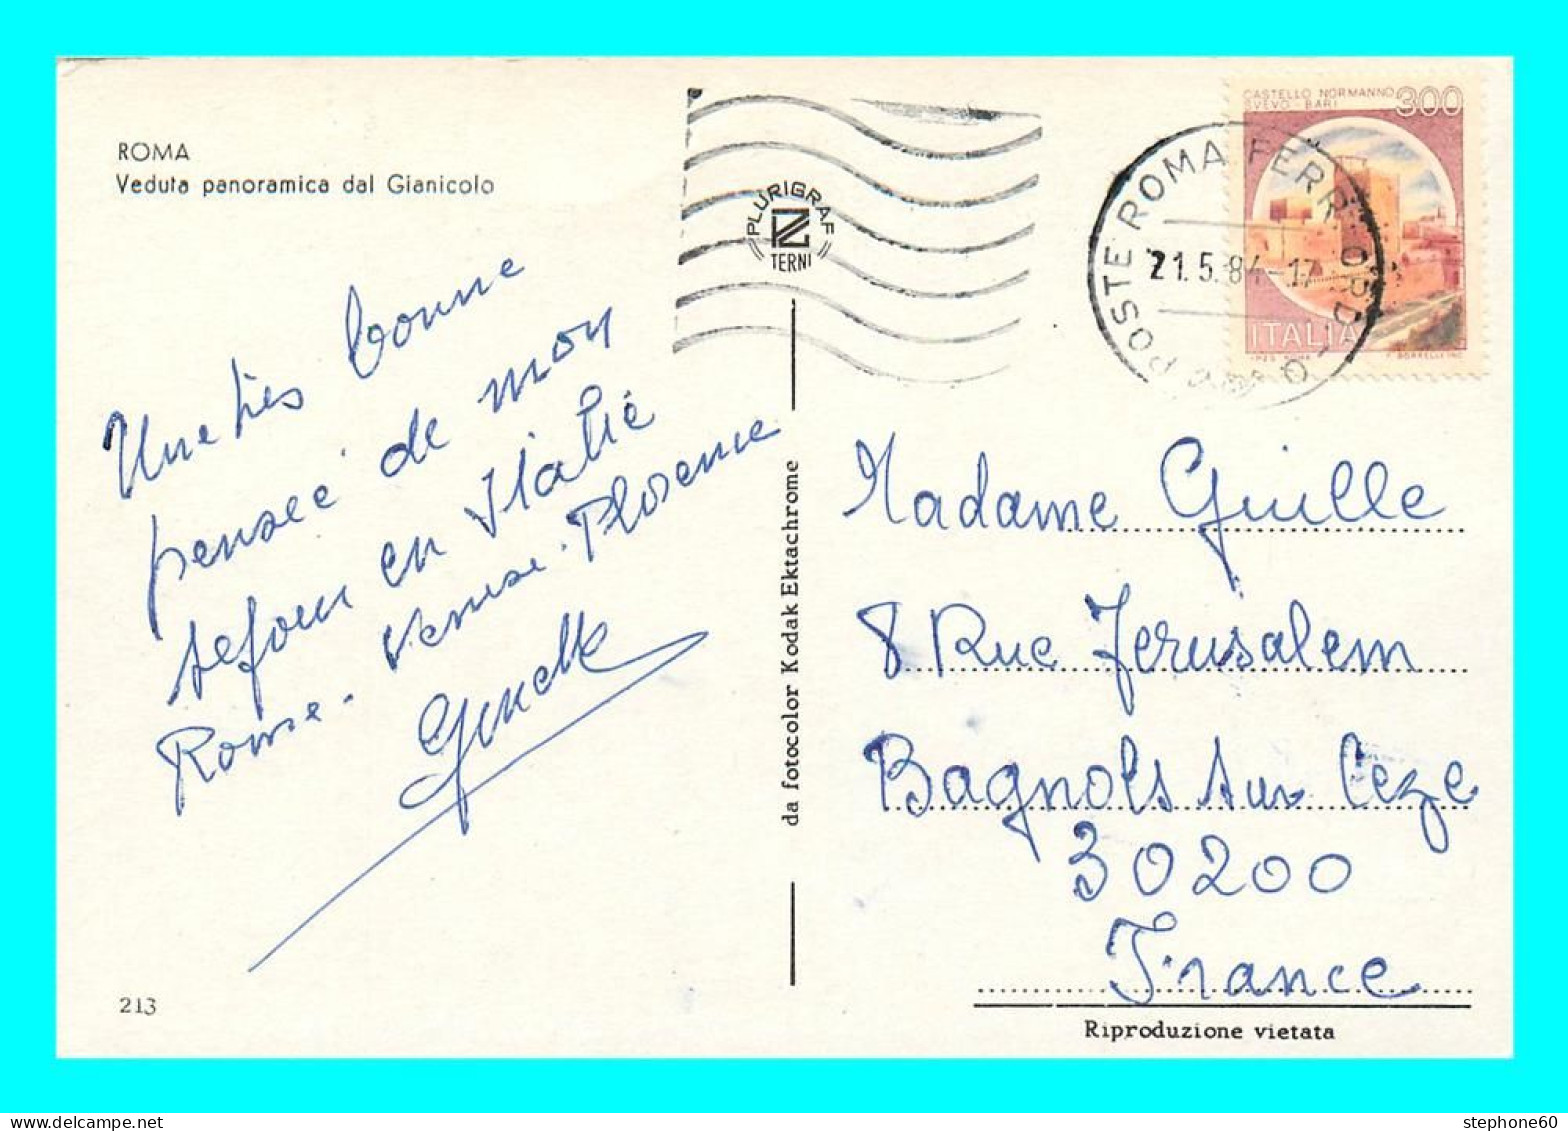 ROMA
Veduta panoramica dal Gianicolo
PLURIGRAF
TERNI
CASTELLO NORMANNO
SVEVO - BARI
300
ITALIA
POSTE ROMA FERR. ORD.
21.5.84-17
Une très bonne
pensée de mon
séjour en Italie
Rome. Venise. Florence
da fotocolor Kodak Ektachrome
Madame Guille
8 Rue Jerusalem
Bagnols sur Ceze
30200
France
213
Riproduzione vietata
stephone60